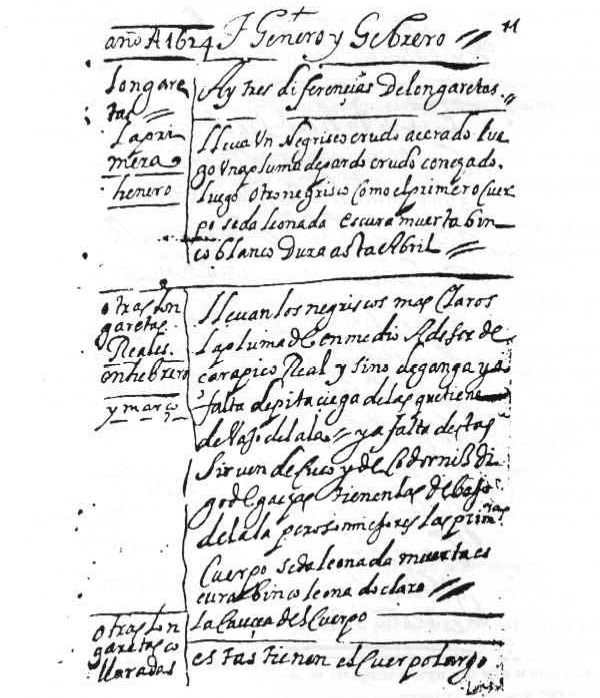 año A 1624 J Genero y Gebrero
11
longare
tas
la pri
mera
henero
Ay tres diferençias De longaretas
lleua Un Negrisco crudo acerado lue
go Una pluma de pardo crudo conejado.
luego otro negrisco Como el primero Cuer
po seda leonada escura muerta bin
co blanco Dura asta Abril
otras lon
garetas
Reales.
en hebrero
y março
lleuan los negriscos mas Claros
la pluma de en medio A de ser de
carapico Real y sino de ganga y a
falta de pitaciega de las que tiene
de vajo del ala y a falta destas
siruen de Cuco y de Codorniz di
go de gaças tienenlas debajo
del ala pero son mejores las prim.as
Cuerpo seda leonada muerta es
cura binco leonado claro
la Caueça del Cuerpo
otras lon
garetas en
lloradas
estas tienen el Cuerpo largo